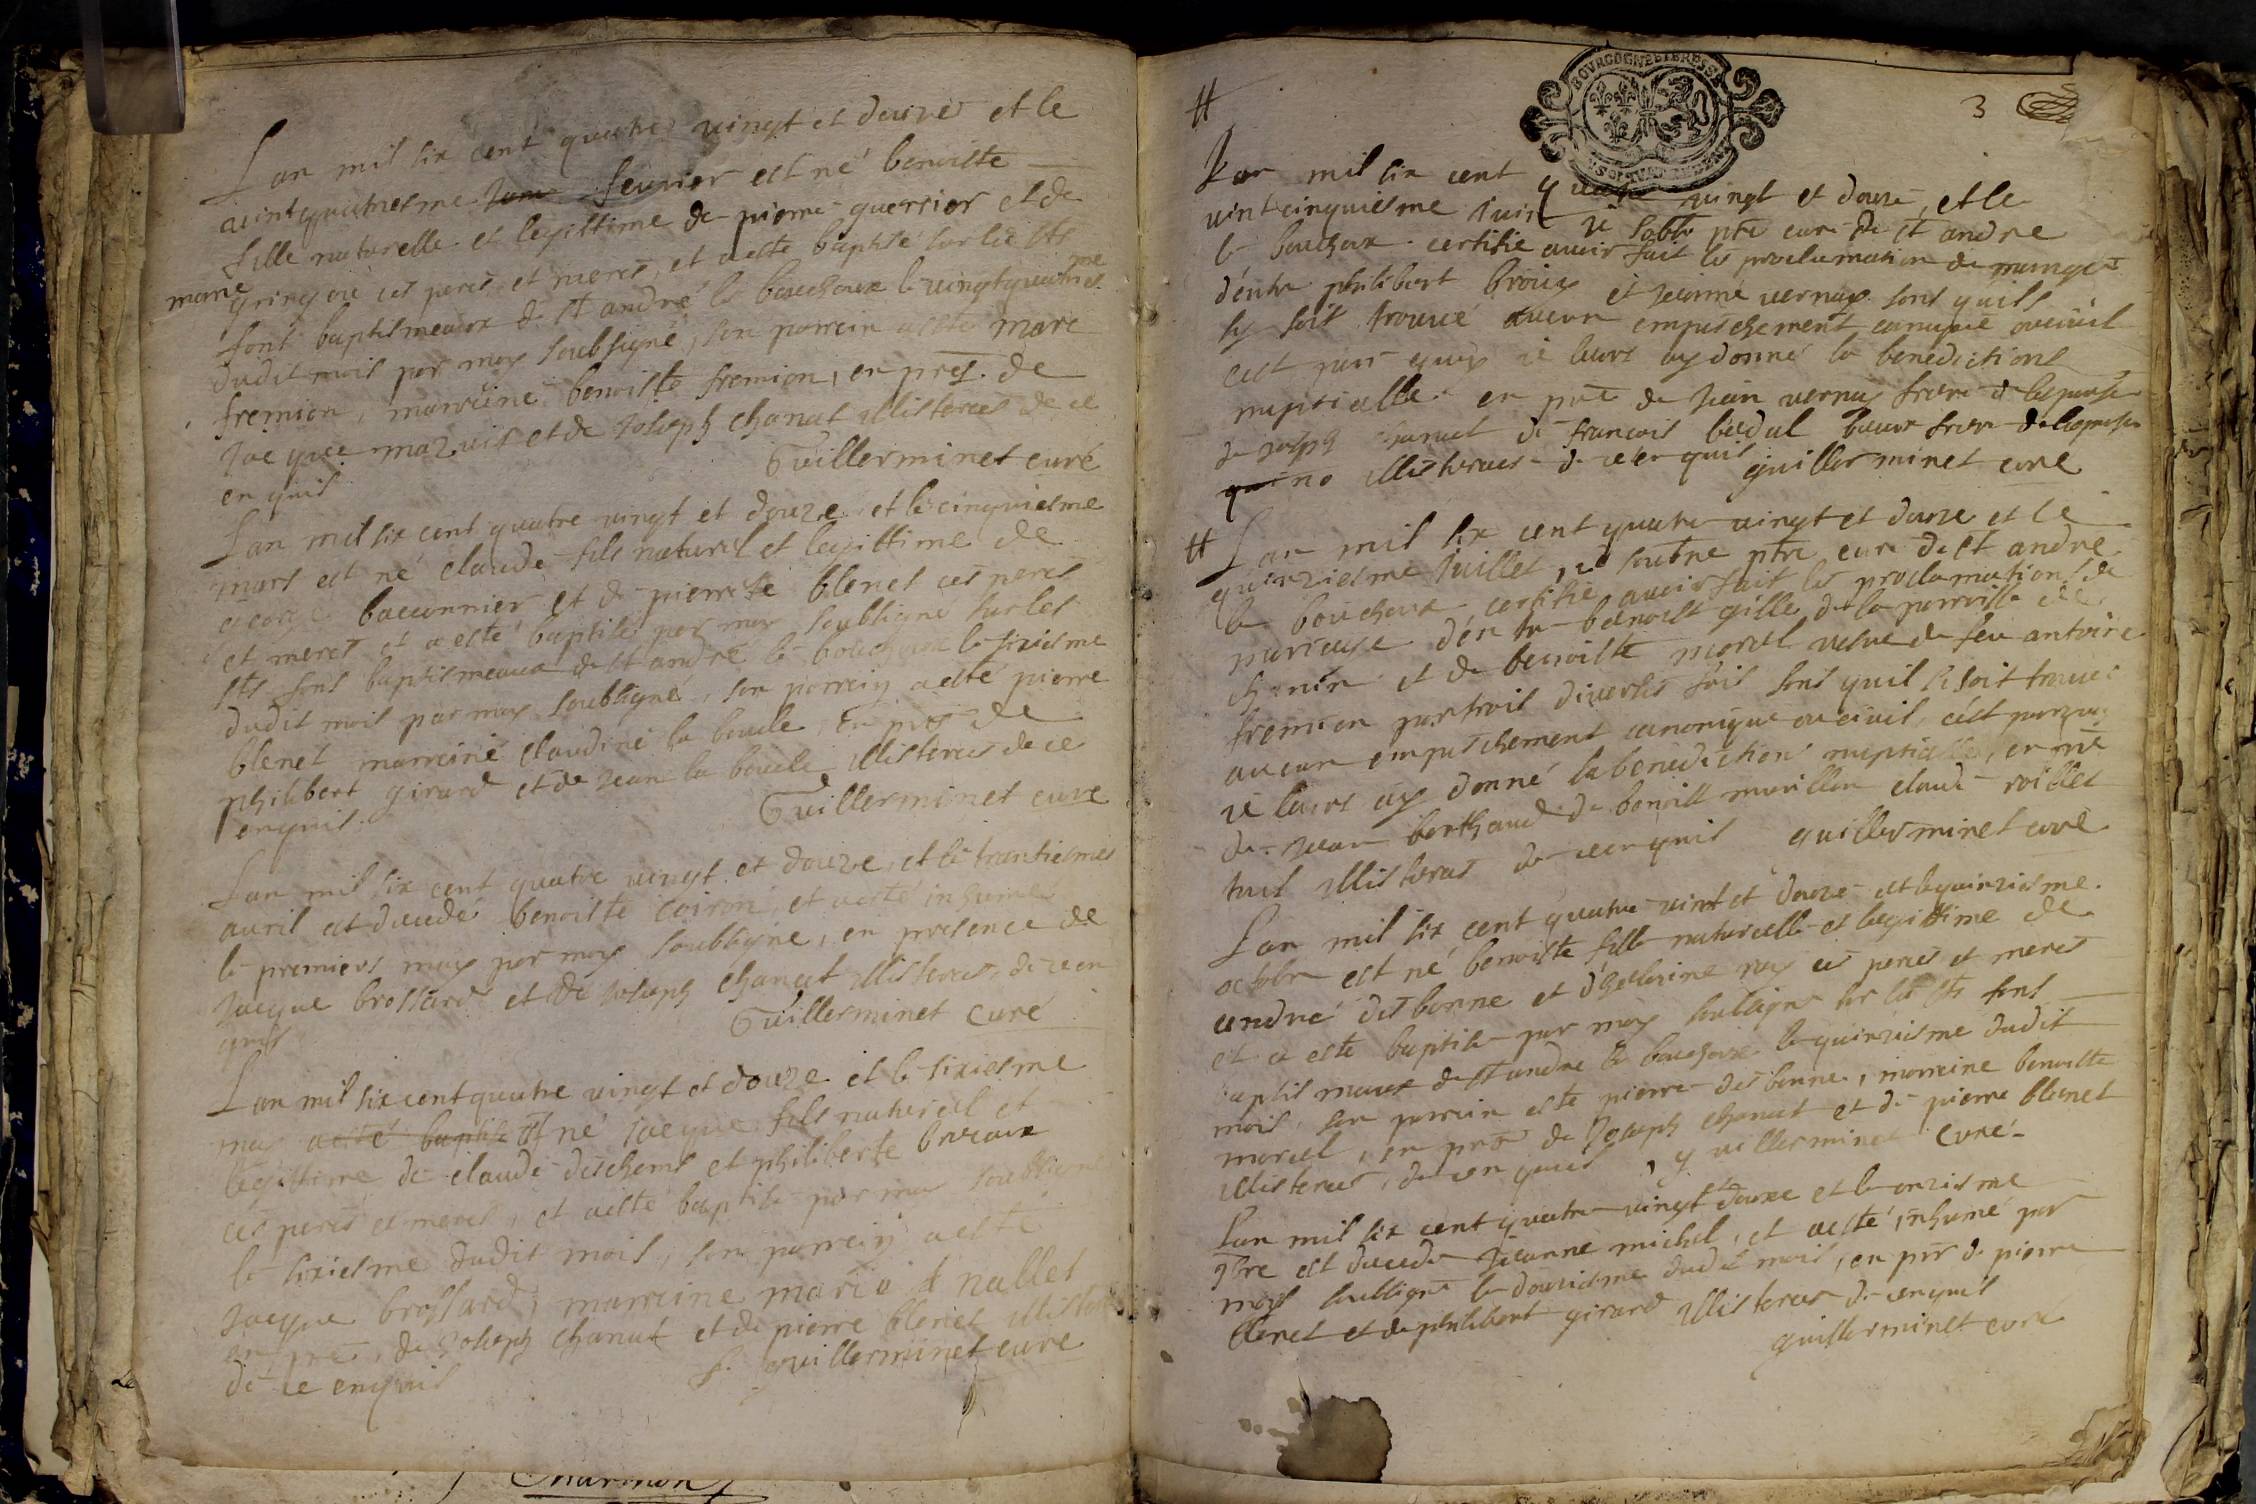 Lan mil six cent quatre vingt et douze et le
vintquatriesme feuvrier est né benoiste
fille naturelle et legittime de pierre guerrier et de
marie
ces peres et meres, et a esté baptisé sur les sts
fons baptismeaux de st andré le bouchoux le vingtquatriesme
dudit mois par moy soubsigné, son parrein a esté marc
fremion, marreine benoiste fremion, en pres. de
Jacque et de Joseph chanut illisteres de ce
enquis Guillerminet curé
Lan mil six cent quatre vingt et douze et le cinquiesme
mars est né claude fils naturel et legittime de
george baconnier et de pierrete blenet ces peres
et meres et a esté baptisé par moy soubsigné sur les
sts fons baptismeaux de st andré le bouchoux le sixiesme
dudit mois par moy soubsigné, son parrein a esté pierre
blenet marreine claudine la boucle, en pres de
philibert girard et de Jean la boucle illisteres de ce
enquis. Guillerminet curé
Lan mil six cent quatre vingt et douze, et le trantiesme
avril est decedé benoiste coiron, et a esté inhumée
le premiers may par moy soubsigné, en presence de
Jacque brossard et de Joseph chanut illisteres, de ce en
quis Guillerminet curé
Lan mil six cent quatre vingt et douze et le sixiesme
may a esté baptisé est né Jacque fils naturel et
legittime de claude deschams et philiberte
ces peres et meres, et a esté baptisé par moy soubsigné
le sixiesme dudit mois, son parrein a esté
Jacque brossard, marreine marie nallet
en pres, de Joseph chanut et de pierre blenet illisteres
de ce enquis guillerminet curé
BOURGOGNE ET BRESSE
3
Lan mil six cent quatre vingt et douze, et le
vint cinquiesme Juin ie soubs ptre curé de st andre
le bouchoux certifie avoir fait les proclamation de mariage
d'entre philibert brouy et Jeanne vernay sans quils
sy soit trouvé aucun empeschement canonique ou civil
cest pour quoy ie leurs ay donné la benediction
nuptialle en pre de Jean vernay frere de lespouse
de Joseph chanut de francois bedul beaux frere de lespouse
illisteres de ce enquis guillerminet curé
Lan mil six cent quatre vingt et douze et le
quinziesme Juillet, ie soubsne ptre curé de st andre
le bouchoux certifie avoir fait les proclamations de
mariage d'entre benoist gille de la parroisse de
et de benoiste morel vefve de feu antoine
fremion par trois diverses fois sans quil si soit trouvé
aucun empeschement canonique ou civil, cest pourquoy
ie leurs ay donné la benediction nuptialle, en pre
de Jean berthaud de benoist morillon claude
tous illisteres de ce enquis guillerminet curé
Lan mil six cent quatre vint et douze et le quinziesme
octobre est né benoiste fille naturelle et legittime de
andré desbonne et d'heleine rey ces peres et meres
et a esté baptisée par moy soubsigné sur les sts fons
baptismaux de st andre le bouchoux le quinziesme dudit
mois, son parrein esté pierre desbonne, marreine benoiste
morel, en pres de Joseph chanut et de pierre blenet
illisteres, de ce enquis, guillerminet curé
Lan mil six cent quatre vingt douze et le onziesme
9bre est decedé Jeanne michel, et a esté inhumé par
moy soubsigné le douziesme dudit mois, en pre de pierre
blenet et de philibert girard illisteres de ce enquis
guillerminet curé